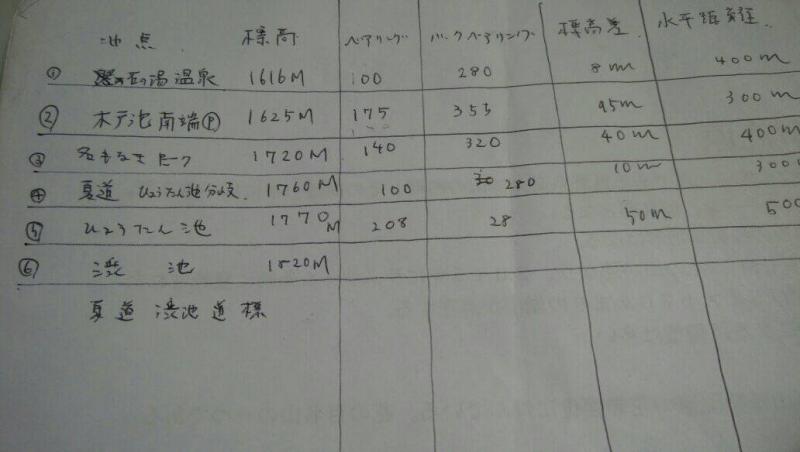 地点 標高 ベアリング バックベアリング 標高差 水平距離
① 石の湯温泉 1616M 100 280 8m 400m
② 木戸池南端Ⓟ 1625M 175 355 95m 300m
③ 名もなきピーク 1720M 140 320 40m 400m
④ 夏道 ひょうたん池分岐. 1760M 100 280 10m 300
⑤ ひょうたん池 1770M 208 28 50m 500
⑥ 渋池 1820M
夏道 渋池道標